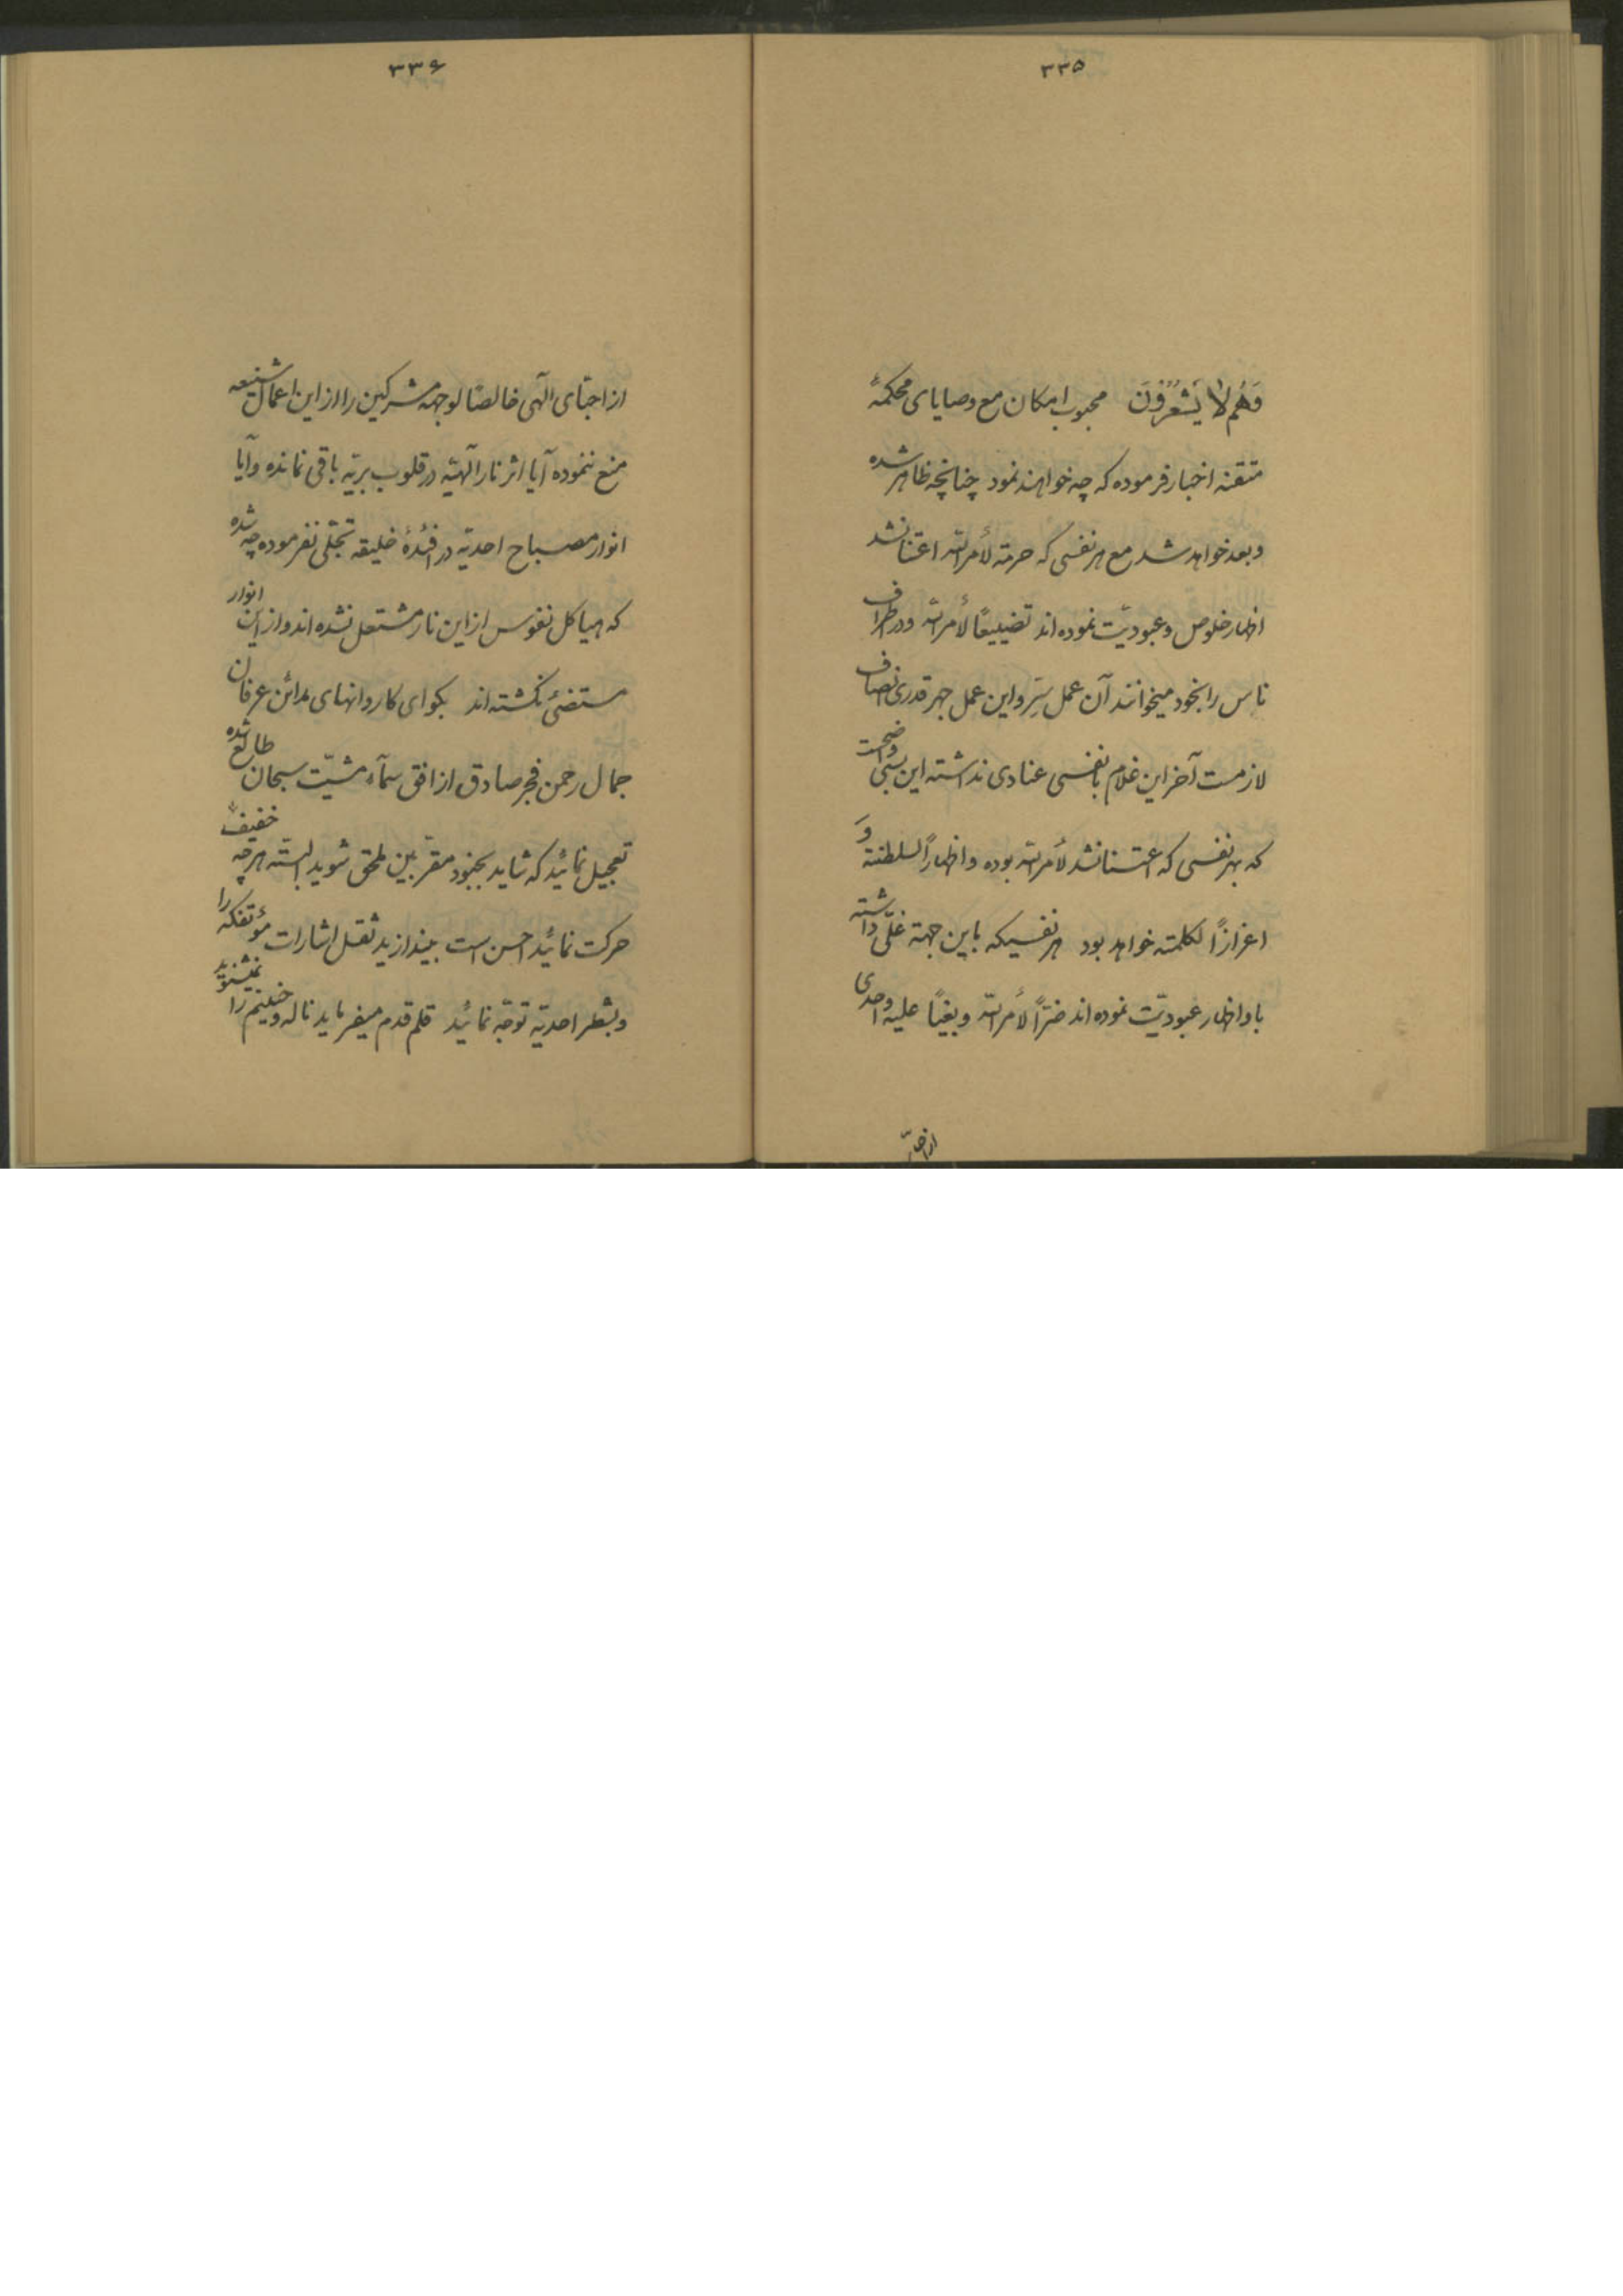 ۳۳۵
وَهُم لا یَشعُرُونَ محبوب امکان مع وصایای محکمهٔ
متقنه اخبار فرموده که چه خواهند نمود چنانچه ظاهر شده
و بعد خواهد شد مع هر نفسی که حرمة لأمر الله اعتنا نشد
اظهار خلوص و عبودیّت نموده اند تضییعاً لأمر الله و در اطراف
ناس را بخود میخوانند آن عمل سِرّ و این عمل جهر قدری انصاف
لازمست آخر این غلام با نفسی عنادی نداشته این بسی واضحست
که بهر نفسی که اعتنا نشد لأمر الله بوده و اظهاراً لسلطنته وَ
اعزازاً لکلمته خواهد بود هر نفسیکه باین جهة غلّی داشته
باو اظهار عبودیّت نموده اند ضرّاً لأمر الله و بغیاً علیه احدی و
۳۳۶
از احبّای الهی خالصاً لوجهه مشرکین را از این اعمال شنیعه
منع ننموده آیا اثر نار الهیّه در قلوب بریّه باقی نمانده و آیا
انوار مصباح احدیّه در افئدهٔ خلیقه تجلّی نفرموده چه شده
که هیاکل نفوس از این نار مشتعل نشده اند و از این انوار
مستضئ نگشته اند بگو ای کاروانهای مدائن عرفان
جمال رحمن فجر صادق از افق سمآء مشیّت سبحان طالع شده
تعجیل نمائید که شاید بجنود مقرّبین ملحق شوید البتّه هر چه خفیف
حرکت نمائید احسن است بیندازید ثقل اشارات مؤتفکه را
و بشطر احدیّه توجّه نمائید قلم قدم میفرماید ناله و حنینم را نمیشنوید